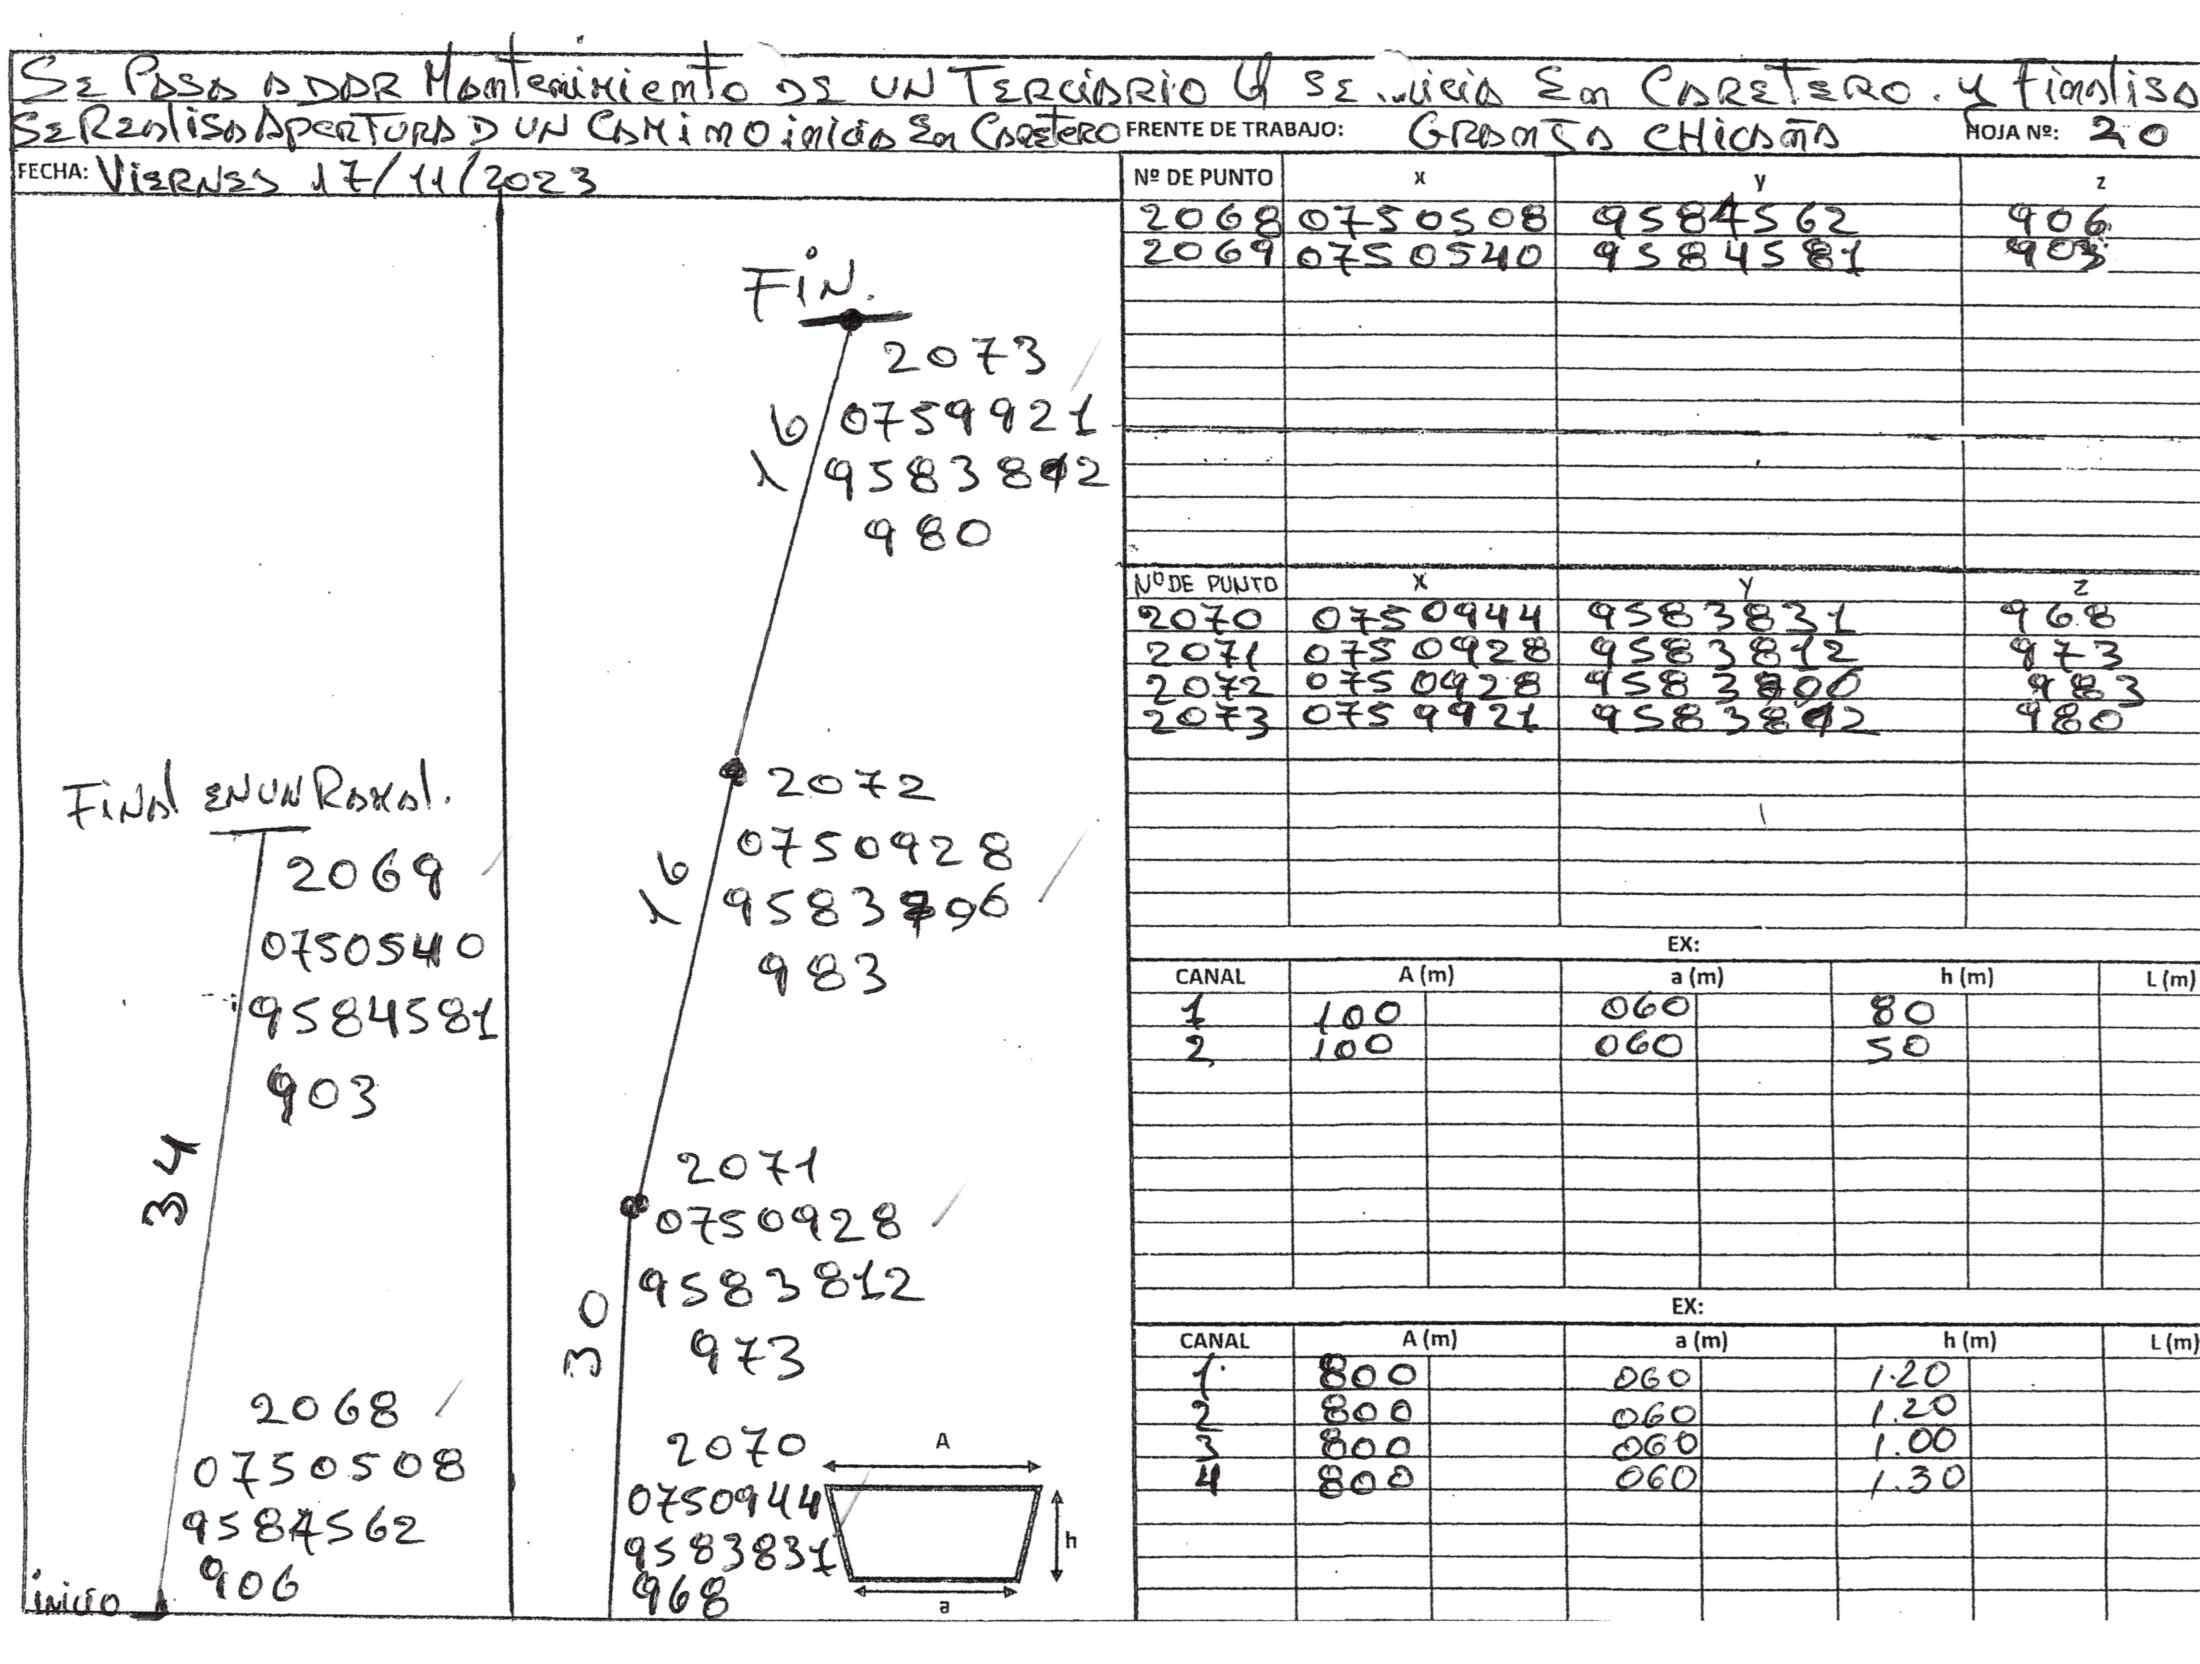 SE PASA A DAR Mantenimiento DE UN TERCIARIO Y SE inicia En CARETERO. y Finalisa
SE REALISA APERTURA D UN CAMINO inicia En CARETERO FRENTE DE TRABAJO: GRANJA CHICAÑA HOJA Nº: 20
FECHA: VIERNES 17/11/2023
Nº DE PUNTO x y z
2068 0750508 9584562 906
2069 0750540 9584581 903
FIN.
2073
0759921
9583812
980
16
2072
0750928
9583796
983
16
2071
0750928
9583812
973
30
2070
0750944
9583831
968
Final EN UN Ramal.
2069
0750540
9584581
903
34
2068
0750508
9584562
906
inicio
A
h
a
Nº DE PUNTO X Y Z
2070 0750944 9583831 968
2071 0750928 9583812 973
2072 0750928 983
2073 0759921 9583812 980
EX:
CANAL A (m) a (m) h (m) L (m)
1 100 060 80
2 100 060 50
EX:
CANAL A (m) a (m) h (m) L (m)
1 800 060 1.20
2 800 060 1.20
3 800 060 1.00
4 800 060 1.30